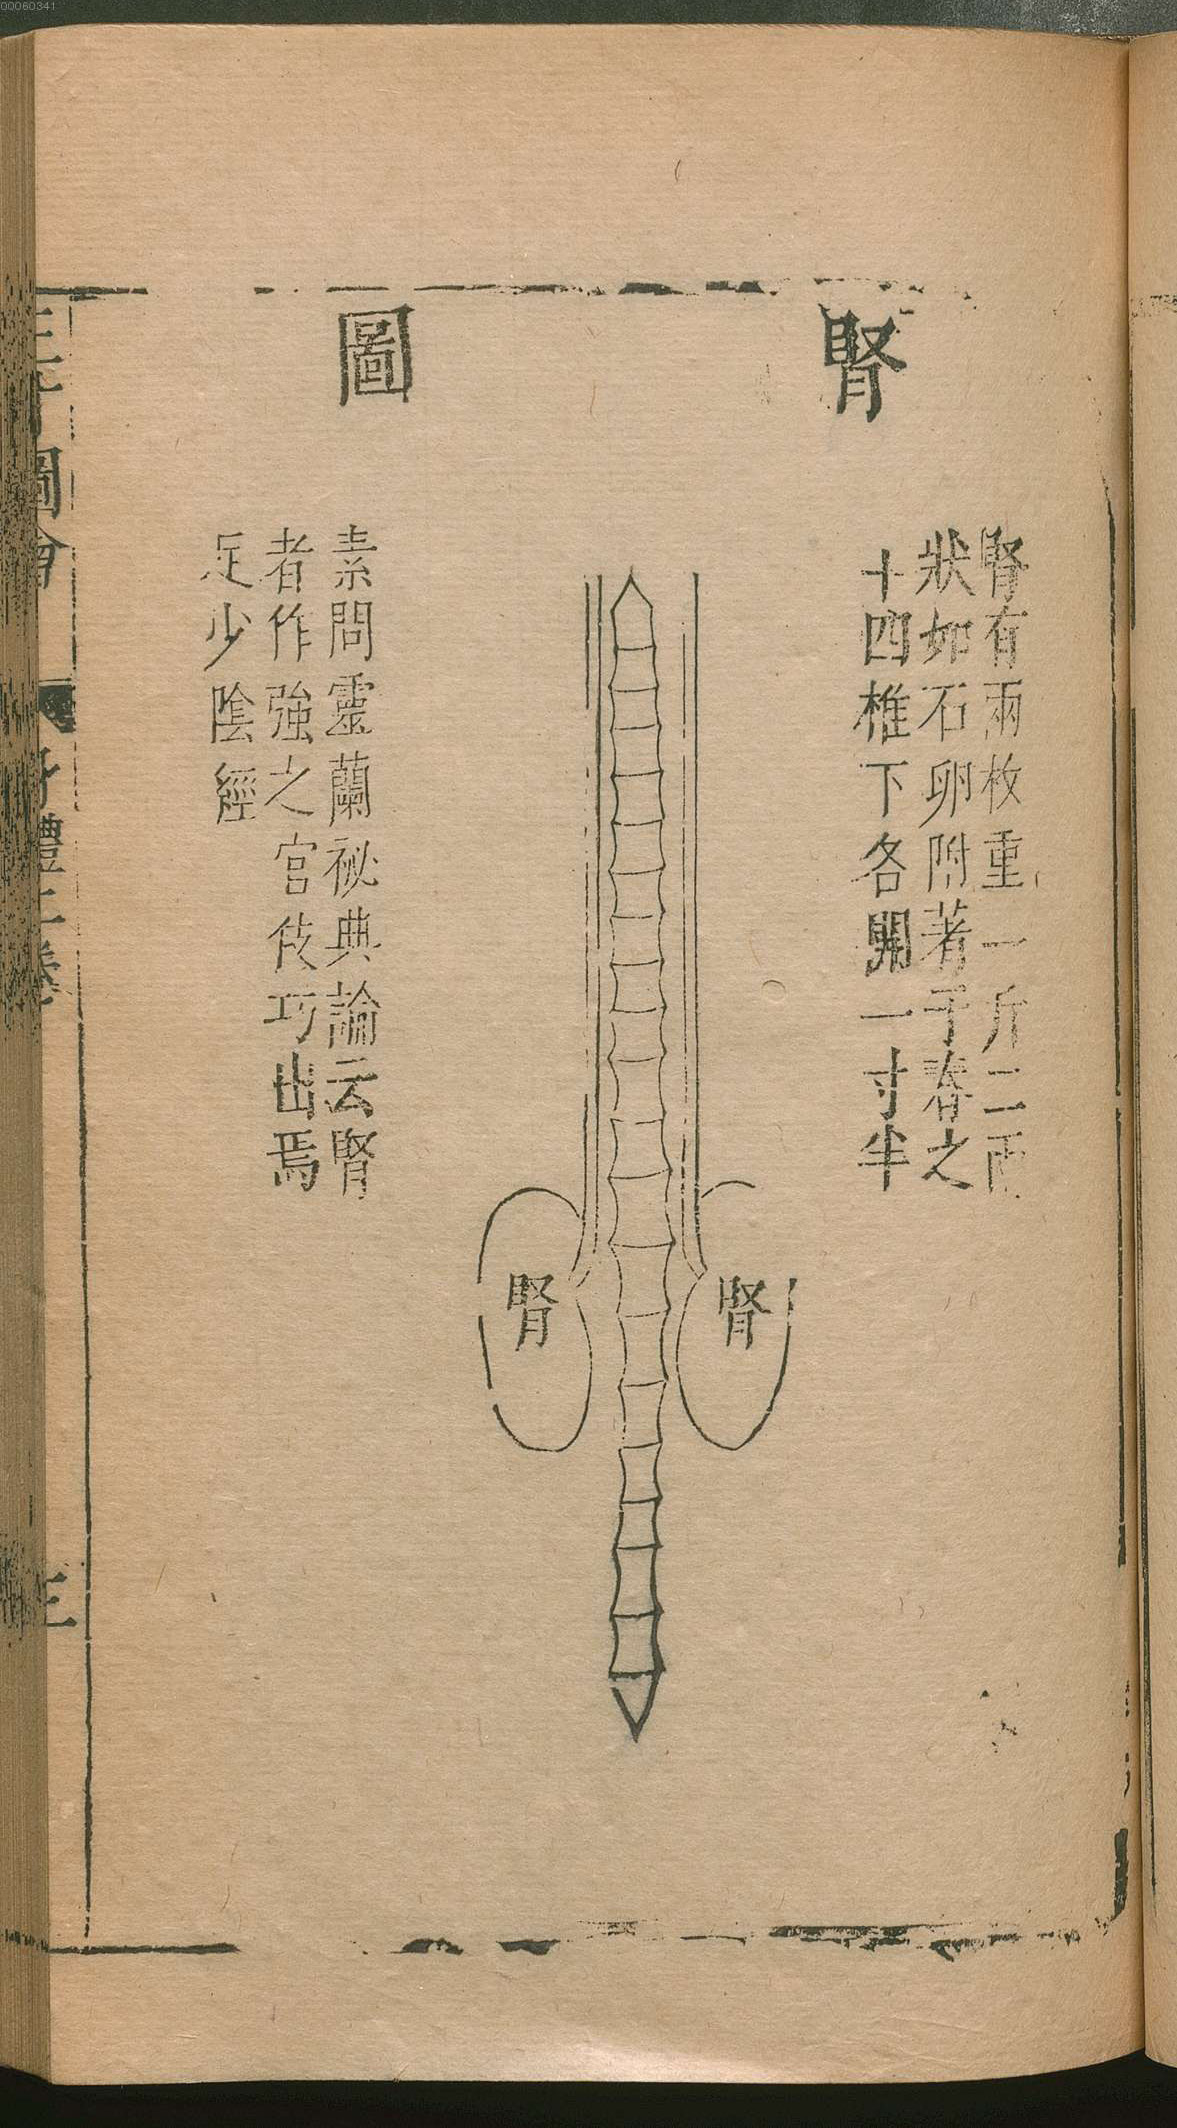 00060341
腎圖
腎有兩枚重一斤二兩
狀如石卵附著于脊之
十四椎下各開一寸半
腎
腎
素問靈蘭祕典論云腎
者作強之官伎巧出焉
足少陰經
圖會